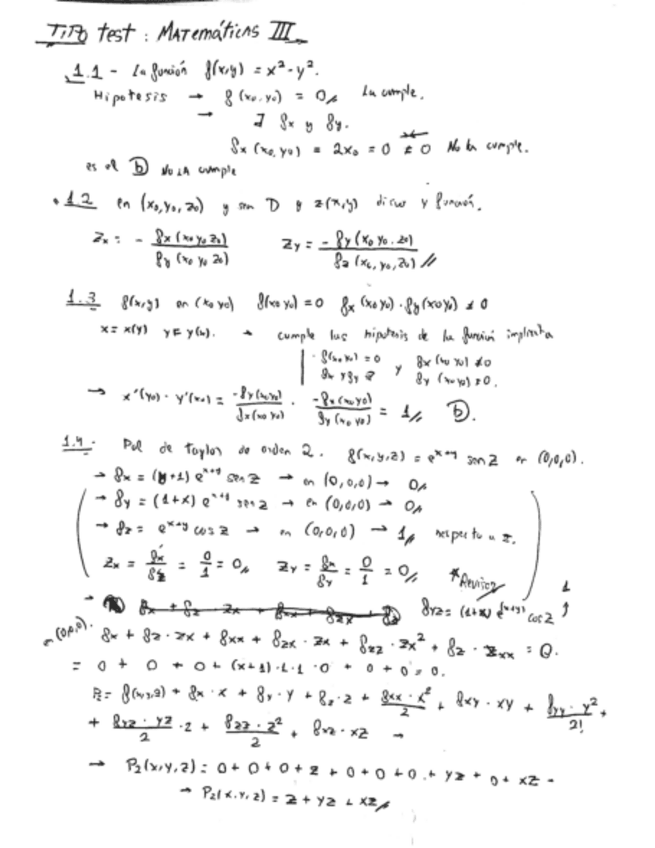 TIPO test : MATEMÁTICAS III
1.1 - La función f(x,y) = x² - y².
Hipotesis → f(x₀,y₀) = 0 La cumple.
→ ∃ fx y fy.
fx(x₀,y₀) = 2x₀ = 0 ≠ 0 No la cumple.
es el b) NO LA cumple
1.2 en (x₀,y₀,z₀) y sea D y z(x,y) función.
Zx = - fx(x₀ y₀ z₀) / fy(x₀ y₀ z₀) Zy = -fy(x₀ y₀ z₀) / fz(x₀,y₀,z₀) //
1.3 f(x,y) en (x₀ y₀) f(x₀ y₀) = 0 fx(x₀ y₀) · fy(x₀ y₀) ≠ 0
x = x(y) y = y(x). → cumple las hipotesis de la función implícita
f(x₀ y₀) = 0 y fx(x₀ y₀) ≠ 0
fx y fy ∃ fy(x₀ y₀) ≠ 0.
→ x'(y₀) · y'(x₀) = -fy(x₀ y₀) / fx(x₀ y₀) · -fx(x₀ y₀) / fy(x₀ y₀) = 1 // b).
1.4 - Pol de taylor de orden 2. f(x,y,z) = e^(x+y) sen z en (0,0,0).
→ fx = (y+1) e^(x+y) sen z → en (0,0,0) → 0
→ fy = (1+x) e^(x+y) sen z → en (0,0,0) → 0
→ fz = e^(x+y) cos z → en (0,0,0) → 1 respecto a z.
Zx = fx / fz = 0/1 = 0 Zy = fx / fy = 0/1 = 0 * Revisar
fyz = (1+x) e^(x+y) cos z ↑ 1
en (0,0,0). fx + fz · zx + fxx + fzx · zx + fzz · zx² + fz · zxx = 0.
= 0 + 0 + 0 + (x+1)·1·1·0 + 0 + 0 = 0.
P₂ = f(x,y,z) + fx · x + fy · y + fz · z + fxx · x² / 2 + fxy · xy + fyy · y² / 2! +
+ fyz · yz / 2 · 2 + fzz · z² / 2 + fxz · xz →
→ P₂(x,y,z) = 0 + 0 + 0 + z + 0 + 0 + 0 + yz + 0 + xz =
→ P₂(x,y,z) = z + yz + xz